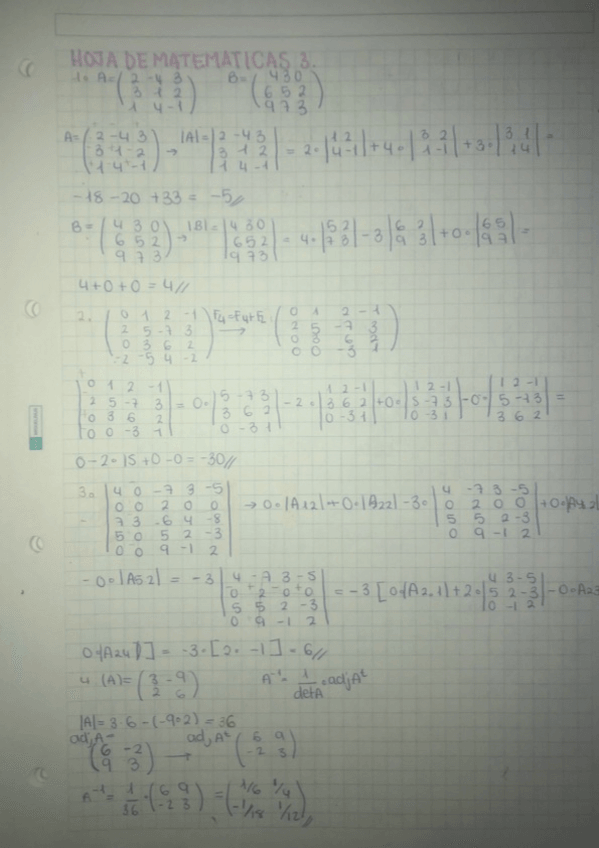 HOJA DE MATEMATICAS 3.
1. A=(2 -4 3 / 3 1 2 / 1 4 -1) B=(4 3 0 / 6 5 2 / 9 7 3)
A=(2 -4 3 / 3 1 2 / 1 4 -1) → |A|=|2 -4 3 / 3 1 2 / 1 4 -1| = 2·|1 2 / 4 -1| + 4·|3 2 / 1 -1| + 3·|3 1 / 1 4| =
-18 -20 +33 = -5//
B=(4 3 0 / 6 5 2 / 9 7 3) → |B|=|4 3 0 / 6 5 2 / 9 7 3| = 4·|5 2 / 7 3| -3|6 2 / 9 3| +0·|6 5 / 9 7| =
4+0+0 = 4//
2. (0 1 2 -1 / 2 5 -7 3 / 0 3 6 2 / -2 -5 4 -2) F4=F4+F2 → (0 1 2 -1 / 2 5 -7 3 / 0 3 6 2 / 0 0 -3 1)
|0 1 2 -1 / 2 5 -7 3 / 0 3 6 2 / 0 0 -3 1| = 0·|5 -7 3 / 3 6 2 / 0 -3 1| -2·|1 2 -1 / 3 6 2 / 0 -3 1| +0·|1 2 -1 / 5 -7 3 / 0 -3 1| -0·|1 2 -1 / 5 -7 3 / 3 6 2| =
0-2·15 +0-0 = -30//
3. |4 0 -7 3 -5 / 0 0 2 0 0 / 7 3 -6 4 -8 / 5 0 5 2 -3 / 0 0 9 -1 2| → 0·|A12| + 0·|A22| -3·|4 -7 3 -5 / 0 2 0 0 / 5 5 2 -3 / 0 9 -1 2| +0·|A42|
-0·|A52| = -3|4 -7 3 -5 / 0 2 0 0 / 5 5 2 -3 / 0 9 -1 2| = -3[0·|A21| +2·|4 3 -5 / 5 2 -3 / 0 -1 2| -0·A23
0·|A24|)] = -3·[2· -1] = 6//
4 (A)=(3 -9 / 2 6) A⁻¹= 1/detA · adjAᵗ
|A|= 3·6-(-9·2) = 36
adjA= (6 -2 / 9 3) → adjAᵗ (6 9 / -2 3)
A⁻¹= 1/36 ·(6 9 / -2 3) = (1/6 1/4 / -1/18 1/12)//